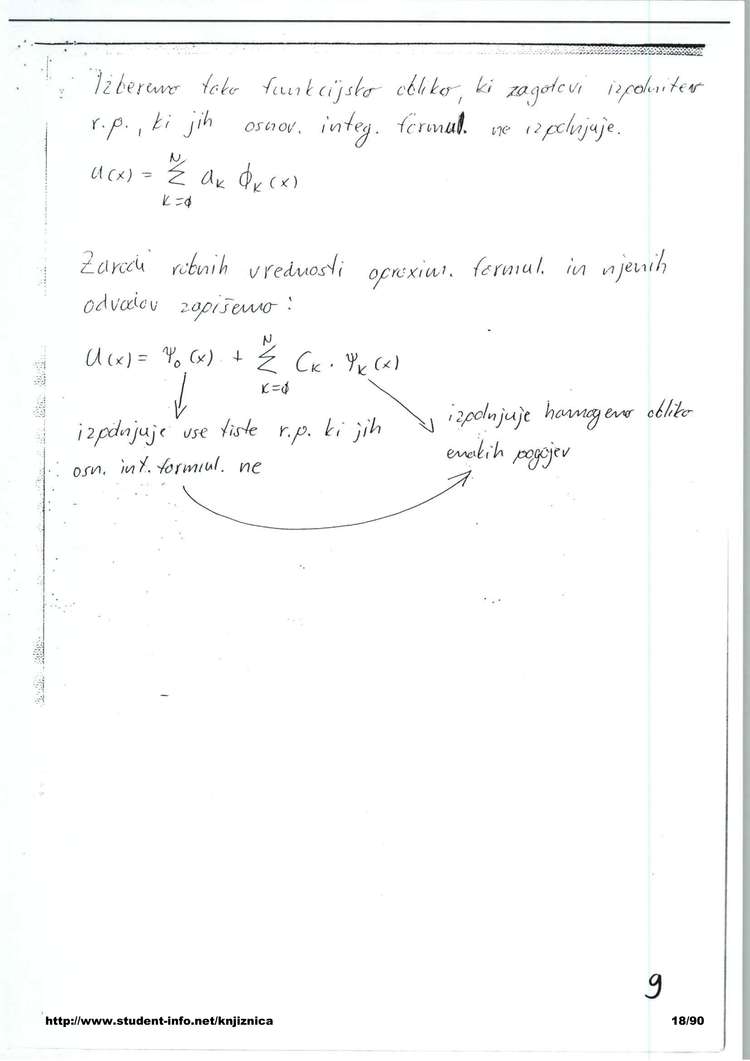 Izberemo tako funkcijsko obliko, ki zagotovi izpolnitev
r.p., ki jih osnov. integ. formul. ne izpolnjuje.
N
u(x) = Σ a_K ϕ_K (x)
K=ϕ
Zaradi robnih vrednosti aproxim. formul. in njenih
odvodov zapišemo:
N
U(x) = Ψ_0 (x) + Σ C_K · Ψ_K (x)
K=ϕ
izpolnjuje vse tiste r.p. ki jih
osn. int. formul. ne
izpolnjuje homogeno obliko
enakih pogojev
9
http://www.student-info.net/knjiznica 18/90